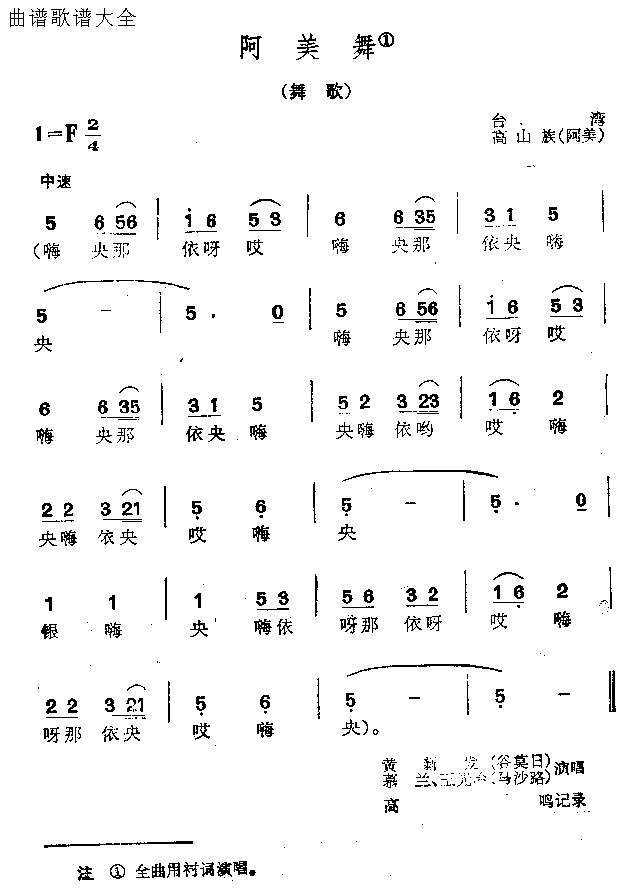 曲谱歌谱大全
阿美舞①
(舞歌)
台湾
1=F 2/4
高山族(阿美)
中速
5 6 56 | i 6 5 3 | 6 6 35 | 3 1 5 |
(嗨 央那 依呀 哎 嗨 央那 依央 嗨
5 - | 5 . 0 | 5 6 56 | i 6 5 3 |
央 嗨 央那 依呀 哎
6 6 35 | 3 1 5 | 5 2 3 23 | 1 6 2 |
嗨 央那 依央 嗨 央嗨 依哟 哎 嗨
2 2 3 21 | 5 6 | 5 - | 5 . 0 |
央嗨 依央 哎 嗨 央
1 1 | 1 5 3 | 5 6 3 2 | 1 6 2 |
银 嗨 央 嗨依 呀那 依呀 哎 嗨
2 2 3 21 | 5 6 | 5 - | 5 - ‖
呀那 依央 哎 嗨 央)。
黄 (谷莫日)
慕兰、王 (马沙路) 演唱
高 鸣记录
注 ① 全曲用衬词演唱。